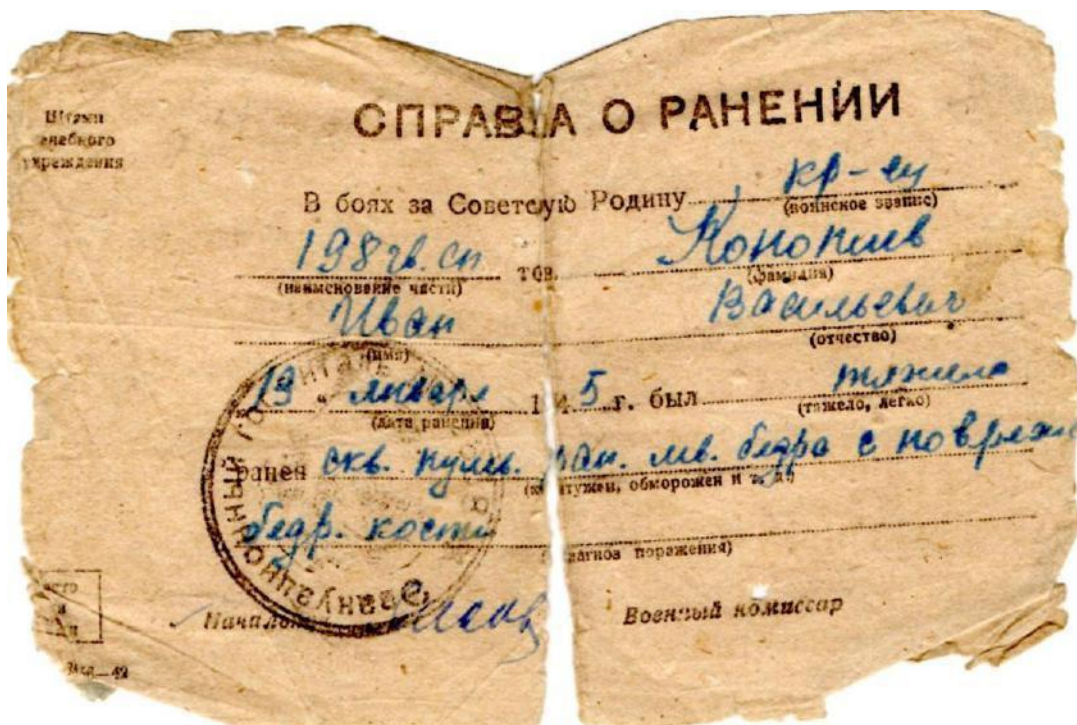 Штамп
лечебного
учреждения
СПРАВКА О РАНЕНИИ
В боях за Советскую Родину кр-ец
(воинское звание)
198 гв. сп тов. Конокиев
(наименование части) (фамилия)
Иван Васильевич
(имя) (отчество)
19 января 1945 г. был тяжело
(дата ранения) (тяжело, легко)
ранен скв. пулев. ран. лев. бедра с поврежд
(контужен, обморожен и т. д.)
бедр. кости
(диагноз поражения)
Начальник Военный комиссар
Эвакуационный госпиталь
42